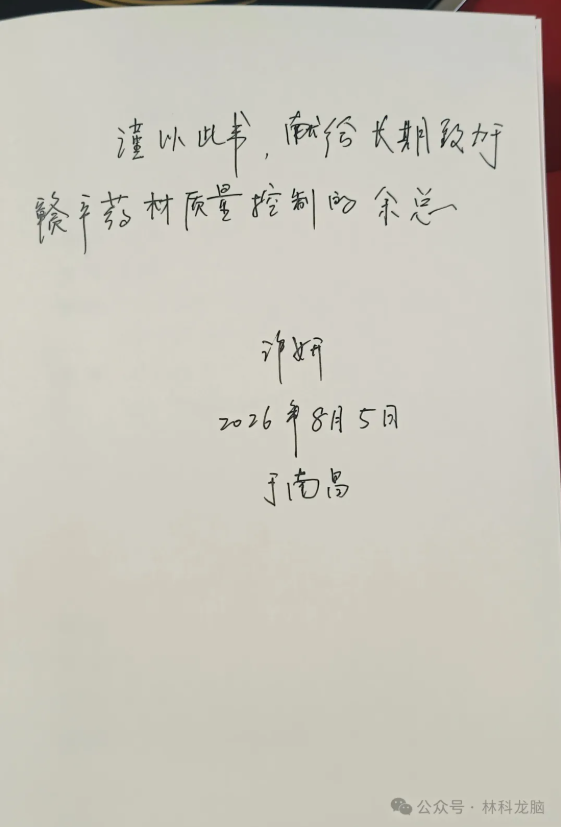 谨以此书，献给长期致力于
赣产药材质量控制的余总
许妍
2026年8月5日
于南昌
公众号·林科龙脑